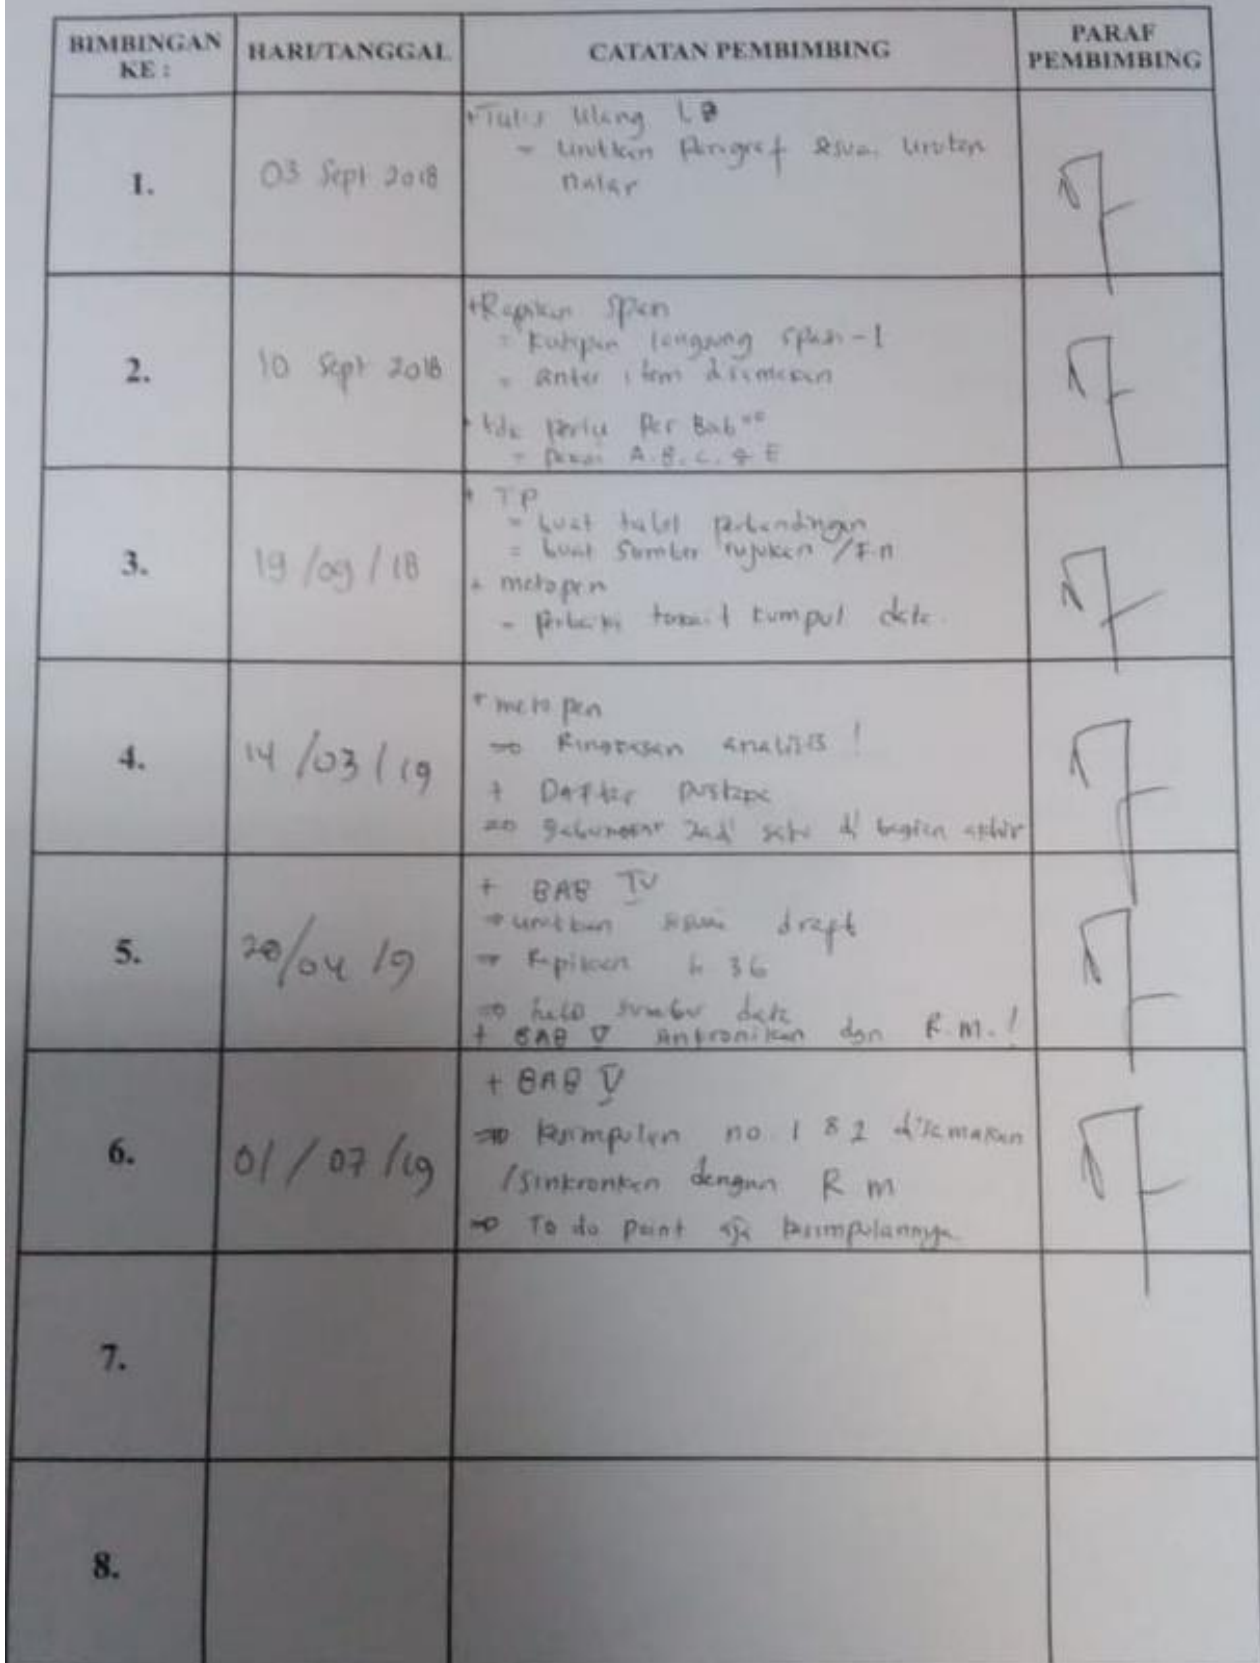 BIMBINGAN KE :
HARI/TANGGAL
CATATAN PEMBIMBING
PARAF PEMBIMBING
1.
03 Sept 2018
+ Tulis Ulang LB
= urutkan Paragraf sesuai urutan
nalar
2.
10 Sept 2018
+ Rapikan Spasi
= kutipan langsung spasi-1
= antar item disamakan
+ tdk perlu per Bab
= A. B. C. & E
3.
19/09/18
+ TP
= buat tabel perbandingan
= buat Sumber rujukan /F.n
+ metopen
= Perbaiki terkait kumpul data
4.
14/03/19
+ metopen
=> analisis !
+ Daftar pustaka
=> gabungkan jadi satu di bagian akhir
5.
20/04/19
+ BAB IV
=> urutkan sesuai draft
=> Rapikan h 36
=> sumber data
+ BAB V dgn R.M.!
6.
01/07/19
+ BAB V
=> kesimpulan no 1 & 2 disamakan
/Sinkronkan dengan R M
=> To do point aja kesimpulannya
7.
8.